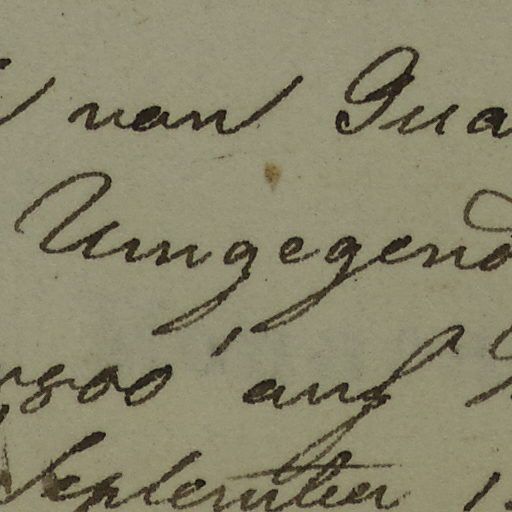 van Gua
Umgegend
rsoo' auf
September 1